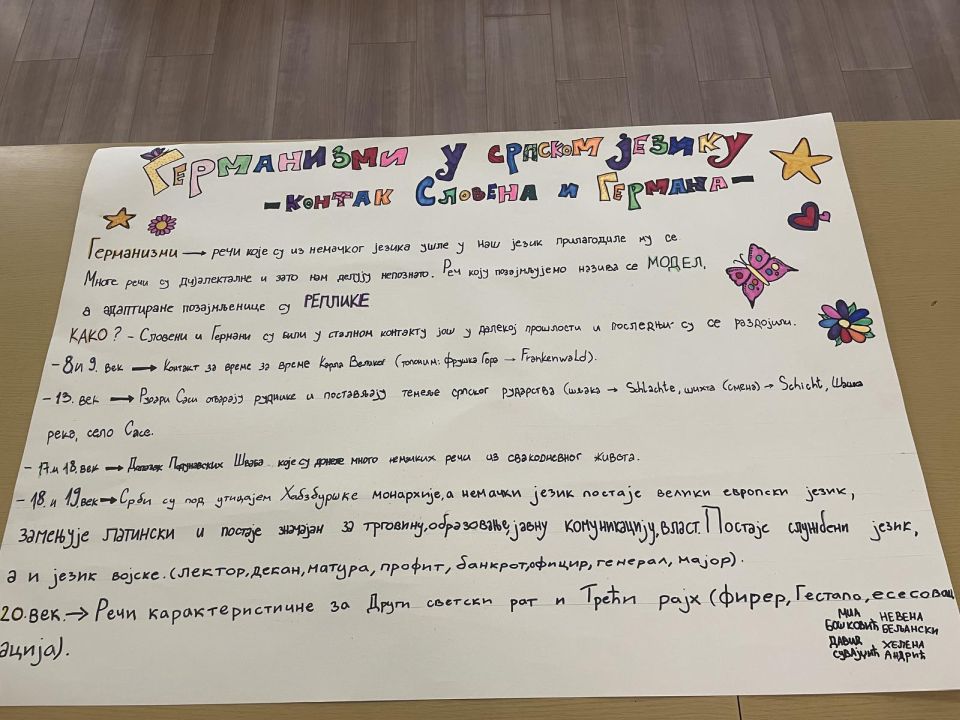 Германизми у српском језику
-контак Словена и Германа-
Германизми → речи које су из немачког језика ушле у наш језик прилагодиле му се
Многе речи су дијалекталне и зато нам делују непознато. Реч коју позајмљујемо назива се МОДЕЛ,
а адаптиране позајмљенице су РЕПЛИКЕ
КАКО? - Словени и Германи су били у сталном контакту још у далекој прошлости и последњи су се раздојили.
-8 и 9. век → Контакт за време за време Карла Великог (топоним: Фрушка Гора → Frankenwald).
-13. век → Рудари Саси отварају руднике и постављају темеље српског рударства (шљака → Schlachte, шихта (смена) → Schicht, Шашка
река, село Сасе.
-17. и 18. век → Долазак Подунавских Шваба које су донеле много немачких речи из свакодневног живота.
-18. и 19. век → Срби су под утицајем Хабзбуршке монархије, а немачки језик постаје велики европски језик,
замењује латински и постаје значајан за трговину, образовање, јавну комуникацију, власт. Постајс службени језик,
а и језик војске. (лектор, декан, матура, профит, банкрот, официр, генерал, мајор).
20. век. → Речи карактеристичне за Други светски рат и Трећи рајх (фирер, Гестапо, есесовац
ација).
МИА БОШКОВИЋ
НЕВЕНА БЕЉАНСКИ
ДАВИД СУВАЈЏИЋ
ХЕЛЕНА АНДРИЋ